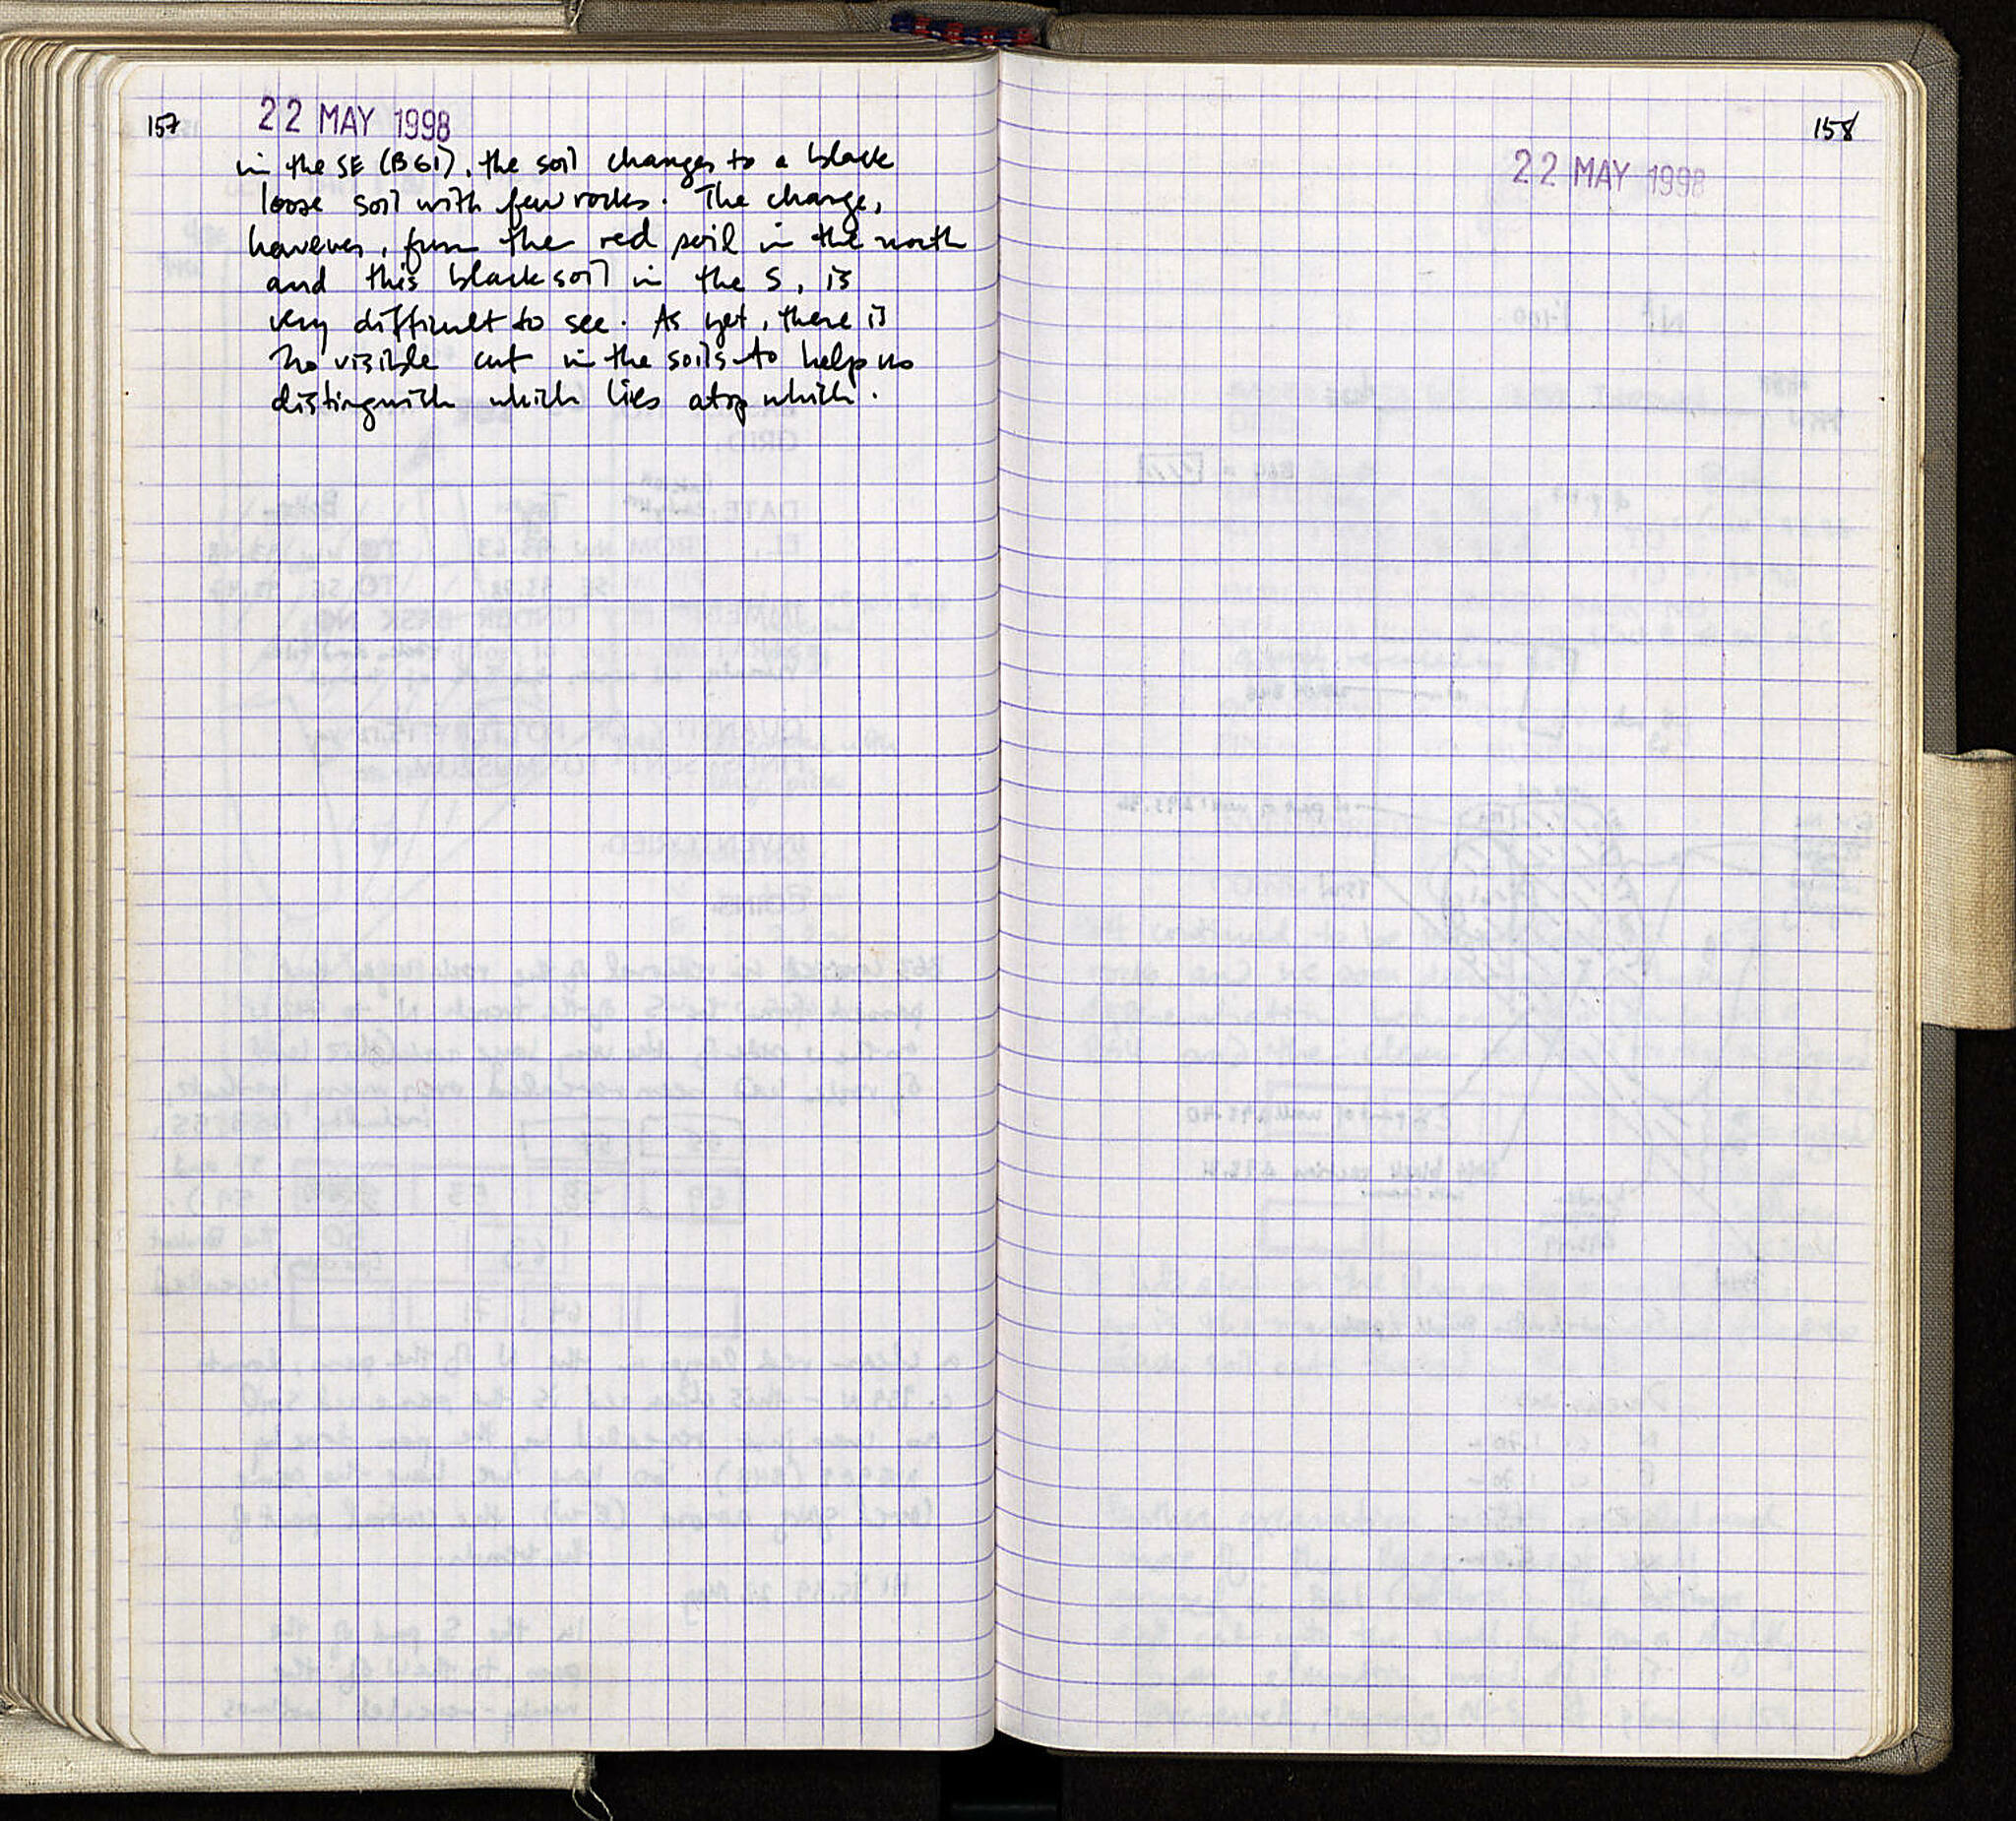 157
22 MAY 1998
in the SE (B61), the soil changes to a black
loose soil with few rocks. The change,
however, from the red soil in the north
and this black soil in the S, is
very difficult to see. As yet, there is
no visible cut in the soils to help us
distinguish which lies atop which.
158
22 MAY 1998